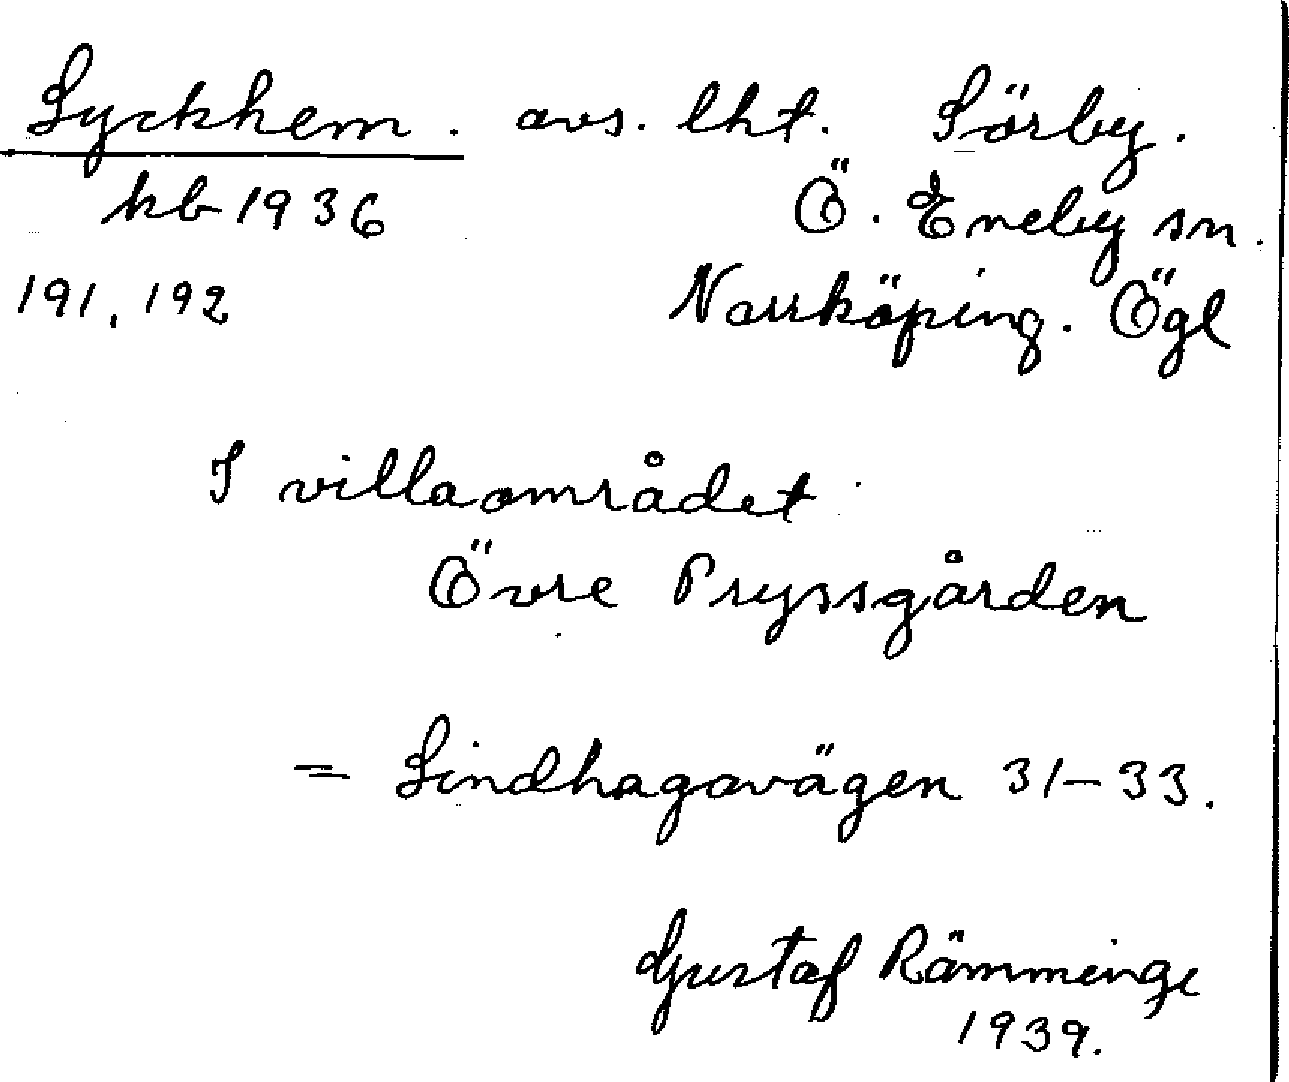 Lyckhem. avs. lht. Sörby.
kb 1936 Ö. Eneby sn.
191, 192 Norrköping. Ögl
I villaområdet
Övre Pryssgården
= Lindhagavägen 31-33.
Gustaf Rämminge
1939.